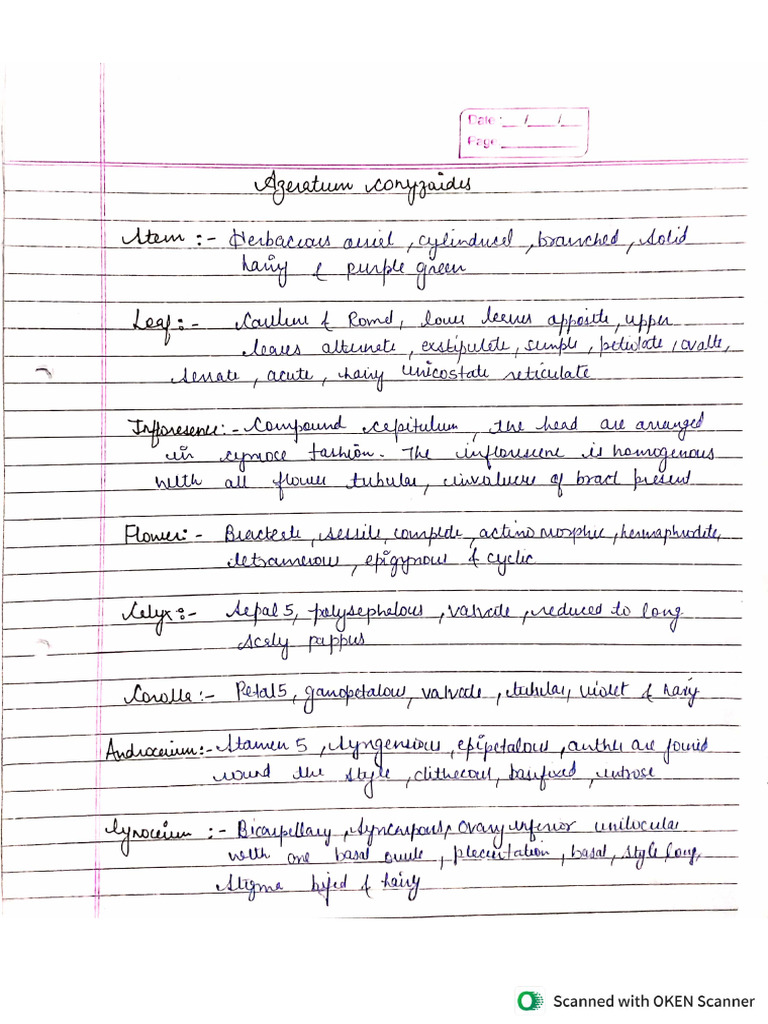 Date : __/__/__
Page
Ageratum conyzoides
Stem :- Herbacious aeriel, cylindiucel, branched, solid
hairy & purple green
Leaf :- Cauline & Ramel, lower leaves opposite, upper
leaves alternate, exstipulate, simple, petiolate, ovalte,
serrate, acute, hairy unicostate reticulate
Infloresence :- Compound capitulum, the head are arranged
in cymose fashion. The inflorescene is homogenous
with all flower tubular, involucre of bract present
Flower :- Bracteate, sessile, complete, actinomorphic, hermaphrodite,
tetramerous, epigynous & cyclic
Calyx :- Sepal 5, polysephalous, valvate, reduced to long
scaly pappus
Corolla :- Petal 5, gamopetalous, valvate, tubular, violet & hairy
Androceium :- Stamen 5, syngensious, epipetalous, anther are found
round the style, dithecous, basifixed, introse
Gynoceium :- Bicarpellary, syncarpous, ovary inferior unilocular
with one basal ovule, placentation, basal, style long,
stigma bifed & hairy
Scanned with OKEN Scanner